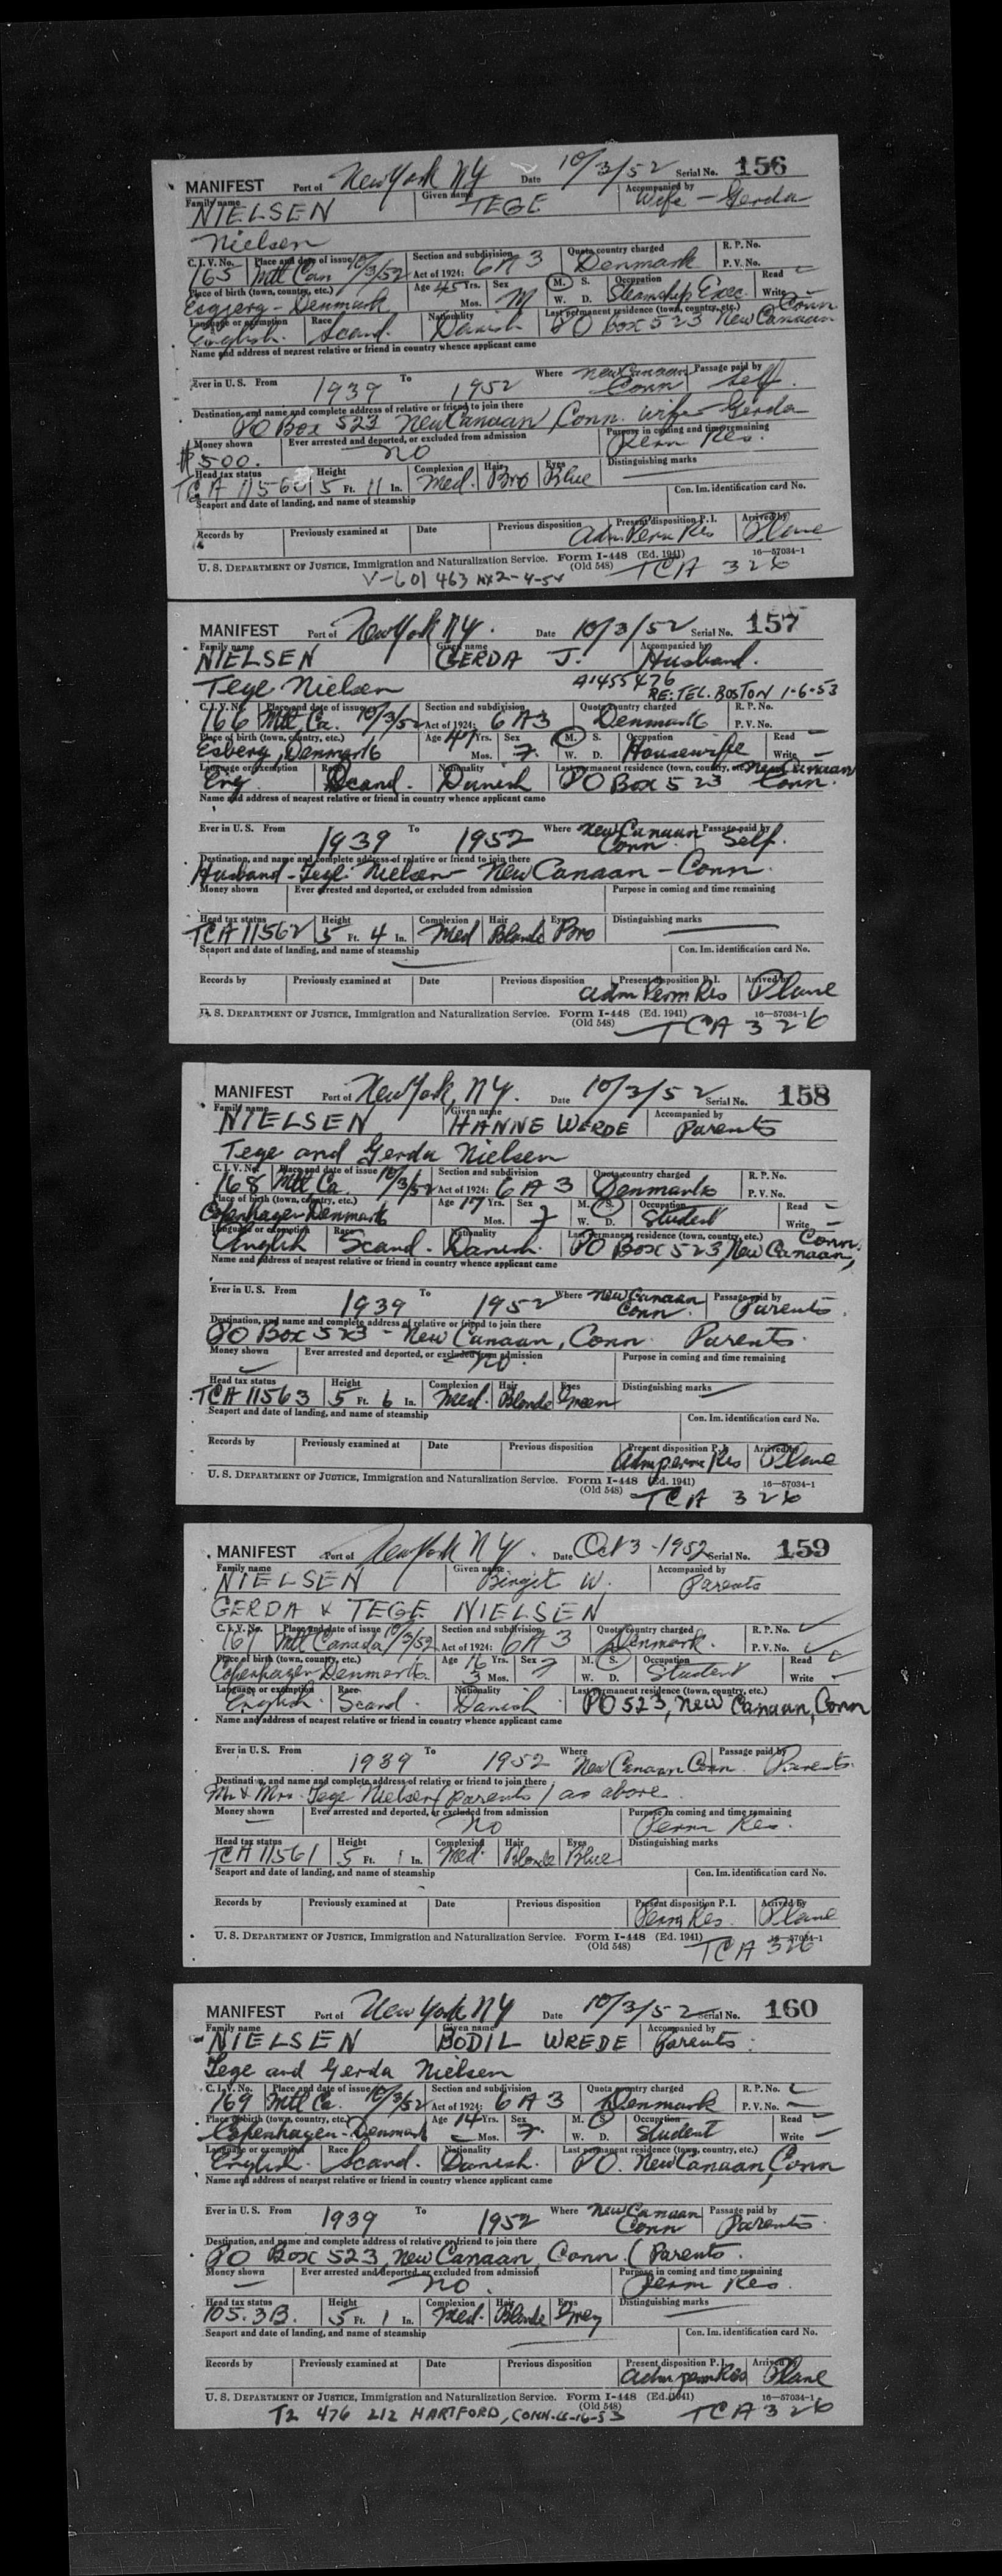 MANIFEST Port of New York NY Date 10/3/52 Serial No. 156
Family name Given name Accompanied by
NIELSEN TEGE Wife - Gerda
Nielsen
C. I. V. No. Place and date of issue Section and subdivision Quota country charged R. P. No.
165 Mtl Can 10/3/52 Act of 1924: 6A3 Denmark P. V. No.
Place of birth (town, country, etc.) Age 45 Yrs. Sex M. S. Occupation Read
Esgjerg - Denmark Mos. M W. D. Steamship Exec. Write
Language or exemption Race Nationality Last permanent residence (town, country, etc.) Conn
English. Scand. Danish PO Box 523 New Canaan
Name and address of nearest relative or friend in country whence applicant came
Ever in U. S. From 1939 To 1952 Where New Canaan Conn Passage paid by Self.
Destination, and name and complete address of relative or friend to join there
PO Box 523 New Canaan, Conn. Wife - Gerda
Money shown Ever arrested and deported, or excluded from admission Purpose in coming and time remaining
$500. no Perm Res.
Head tax status Height Complexion Hair Eyes Distinguishing marks
TCA 11560 5 Ft. 11 In. Med. Bro Blue
Seaport and date of landing, and name of steamship Con. Im. identification card No.
Records by Previously examined at Date Previous disposition Present disposition P. I. Arrived by
Adm Perm Res Plane
U. S. DEPARTMENT OF JUSTICE, Immigration and Naturalization Service. Form I-448 (Ed. 1941) 16—57034-1
(Old 548) TCA 326
V-601463 2-4-54
MANIFEST Port of New York NY. Date 10/3/52 Serial No. 157
Family name Given name Accompanied by
NIELSEN GERDA J. Husband.
Tege Nielsen A1455476
RE: TEL. BOSTON 1-6-53
C. I. V. No. Place and date of issue Section and subdivision Quota country charged R. P. No.
166 Mtl Ca. 10/3/52 Act of 1924: 6A3 Denmark P. V. No.
Place of birth (town, country, etc.) Age 47 Yrs. Sex M. S. Occupation Read
Esberg, Denmark Mos. F. W. D. Housewife Write
Language or exemption Race Nationality Last permanent residence (town, country, etc.) New Canaan
Eng. Scand. Danish PO Box 523 Conn.
Name and address of nearest relative or friend in country whence applicant came
Ever in U. S. From 1939 To 1952 Where New Canaan Conn Passage paid by Self.
Destination, and name and complete address of relative or friend to join there
Husband - Tege Nielsen - New Canaan - Conn.
Money shown Ever arrested and deported, or excluded from admission Purpose in coming and time remaining
Head tax status Height Complexion Hair Eyes Distinguishing marks
TCA 11562 5 Ft. 4 In. Med Blonde Bro
Seaport and date of landing, and name of steamship Con. Im. identification card No.
Records by Previously examined at Date Previous disposition Present disposition P. I. Arrived by
Adm Perm Res Plane
U. S. DEPARTMENT OF JUSTICE, Immigration and Naturalization Service. Form I-448 (Ed. 1941) 16—57034-1
(Old 548) TCA 326
MANIFEST Port of New York, NY. Date 10/3/52 Serial No. 158
Family name Given name Accompanied by
NIELSEN HANNE WERDE Parents
Tege and Gerda Nielsen
C. I. V. No. Place and date of issue Section and subdivision Quota country charged R. P. No.
168 Mtl Ca. 10/3/52 Act of 1924: 6A3 Denmark P. V. No.
Place of birth (town, country, etc.) Age 17 Yrs. Sex M. S. Occupation Read
Copenhagen Denmark Mos. F W. D. Student Write
Language or exemption Race Nationality Last permanent residence (town, country, etc.) Conn.
English Scand. Danish. PO Box 523, New Canaan,
Name and address of nearest relative or friend in country whence applicant came
Ever in U. S. From 1939 To 1952 Where New Canaan Conn. Passage paid by Parents.
Destination, and name and complete address of relative or friend to join there
PO Box 523 - New Canaan, Conn. Parents.
Money shown Ever arrested and deported, or excluded from admission Purpose in coming and time remaining
no.
Head tax status Height Complexion Hair Eyes Distinguishing marks
TCA 11563 5 Ft. 6 In. Med. Blonde Green
Seaport and date of landing, and name of steamship Con. Im. identification card No.
Records by Previously examined at Date Previous disposition Present disposition P. I. Arrived by
Adm perm Res Plane
U. S. DEPARTMENT OF JUSTICE, Immigration and Naturalization Service. Form I-448 (Ed. 1941) 16—57034-1
(Old 548) TCA 326
MANIFEST Port of New York NY. Date Oct 3 - 1952 Serial No. 159
Family name Given name Accompanied by
NIELSEN Birgit W. Parents
GERDA & TEGE NIELSEN
C. I. V. No. Place and date of issue Section and subdivision Quota country charged R. P. No.
167 Mtl Canada 10/3/52 Act of 1924: 6A3 Denmark. P. V. No.
Place of birth (town, country, etc.) Age 16 Yrs. Sex M. S. Occupation Read
Copenhagen Denmark. 3 Mos. F W. D. Student Write
Language or exemption Race Nationality Last permanent residence (town, country, etc.)
English. Scand. Danish PO 523, New Canaan, Conn
Name and address of nearest relative or friend in country whence applicant came
Ever in U. S. From 1939 To 1952 Where New Canaan Conn. Passage paid by Parents.
Destination, and name and complete address of relative or friend to join there
Mr & Mrs. Tege Nielsen (parents) as above.
Money shown Ever arrested and deported, or excluded from admission Purpose in coming and time remaining
no Perm Res.
Head tax status Height Complexion Hair Eyes Distinguishing marks
TCA 11561 5 Ft. 1 In. Med. Blonde Blue
Seaport and date of landing, and name of steamship Con. Im. identification card No.
Records by Previously examined at Date Previous disposition Present disposition P. I. Arrived by
Perm Res. Plane
U. S. DEPARTMENT OF JUSTICE, Immigration and Naturalization Service. Form I-448 (Ed. 1941) 16—57034-1
(Old 548) TCA 326
MANIFEST Port of New York NY Date 10/3/52 Serial No. 160
Family name Given name Accompanied by
NIELSEN BODIL WREDE Parents.
Tege and Gerda Nielsen
C. I. V. No. Place and date of issue Section and subdivision Quota country charged R. P. No.
169 Mtl Ca. 10/3/52 Act of 1924: 6A3 Denmark P. V. No.
Place of birth (town, country, etc.) Age 14 Yrs. Sex M. S. Occupation Read
Copenhagen - Denmark Mos. F. W. D. Student Write
Language or exemption Race Nationality Last permanent residence (town, country, etc.)
English. Scand. Danish. PO. New Canaan, Conn
Name and address of nearest relative or friend in country whence applicant came
Ever in U. S. From 1939 To 1952 Where New Canaan Conn Passage paid by Parents.
Destination, and name and complete address of relative or friend to join there
PO Box 523, New Canaan, Conn. (Parents.
Money shown Ever arrested and deported, or excluded from admission Purpose in coming and time remaining
no. Perm Res.
Head tax status Height Complexion Hair Eyes Distinguishing marks
105.3B. 5 Ft. 1 In. Med. Blonde Grey
Seaport and date of landing, and name of steamship Con. Im. identification card No.
Records by Previously examined at Date Previous disposition Present disposition P. I. Arrived by
Adm perm Res Plane
U. S. DEPARTMENT OF JUSTICE, Immigration and Naturalization Service. Form I-448 (Ed. 1941) 16—57034-1
(Old 548) TCA 326
T2 476 212 HARTFORD, CONN.